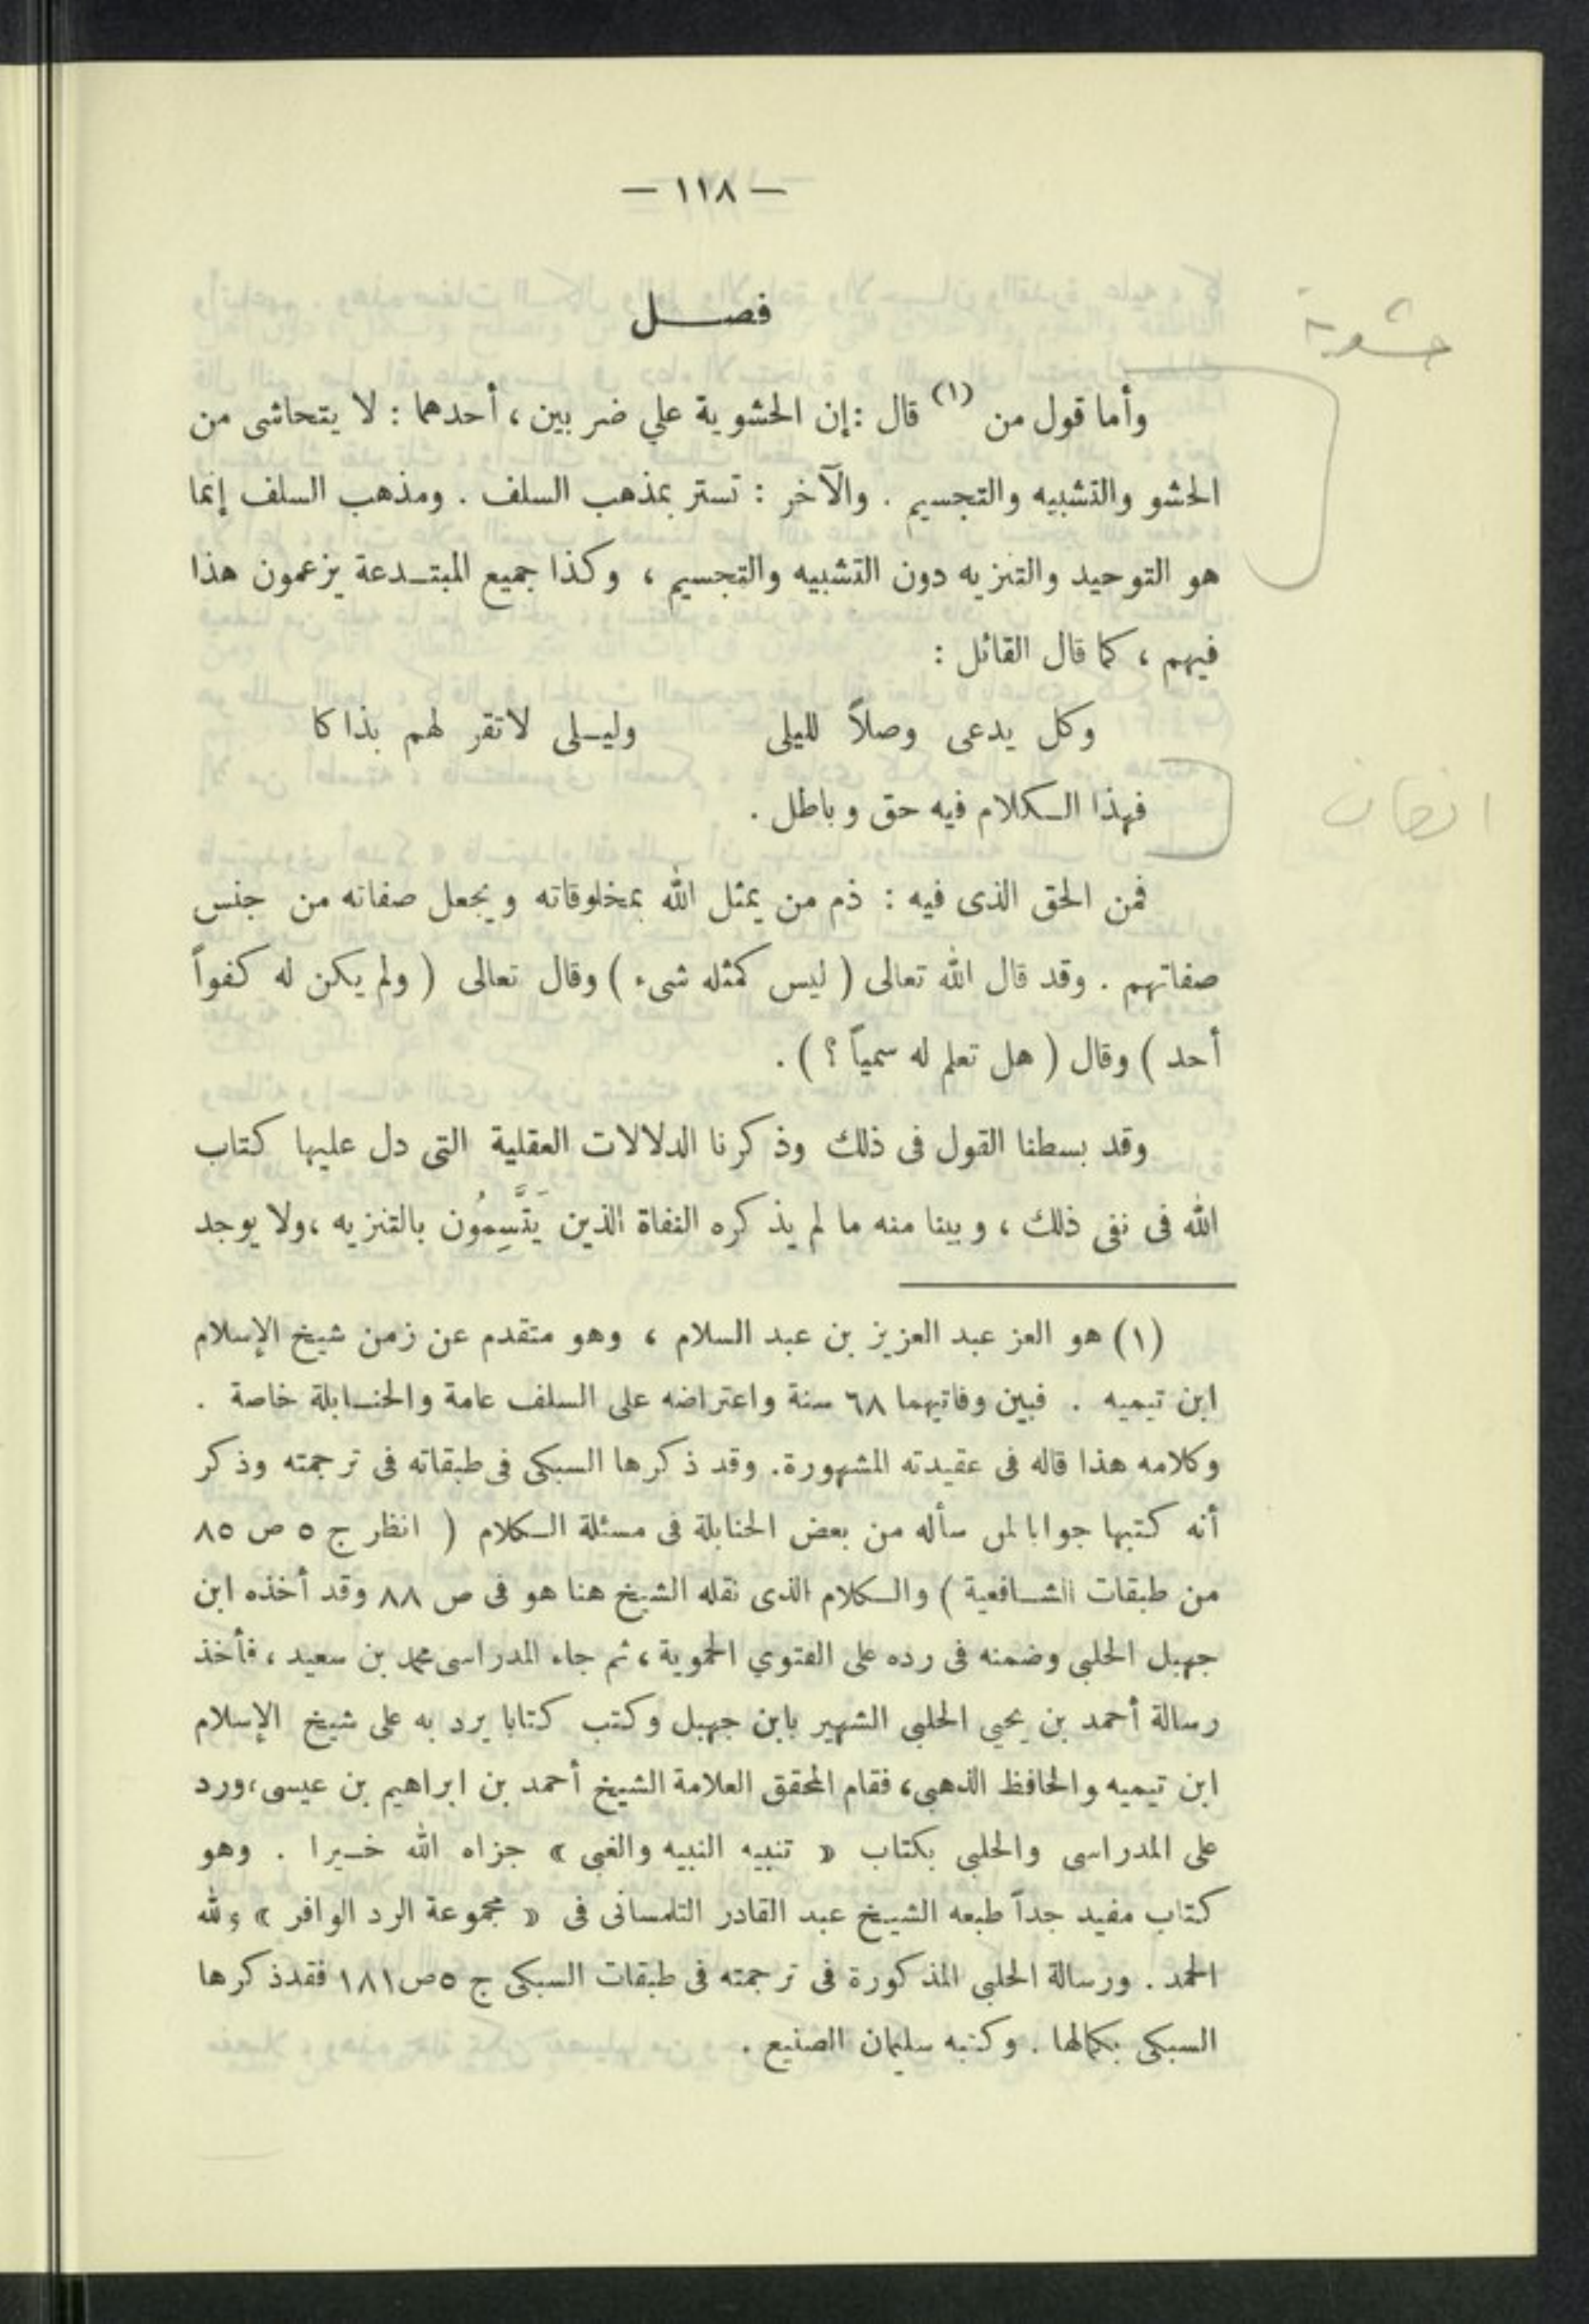 — ١١٨ —
فصل
حشوية
وأما قول من (١) قال : إن الحشوية علي ضربين ، أحدهما : لا يتحاشى من
الحشو والتشبيه والتجسيم . والآخر : تستر بمذهب السلف . ومذهب السلف إنما
هو التوحيد والتنزيه دون التشبيه والتجسيم ، وكذا جميع المبتدعة يزعمون هذا
فيهم ، كما قال القائل :
وكل يدعى وصلاً لليلى وليلى لا تقر لهم بذاكا
فهذا الكلام فيه حق وباطل .
فمن الحق الذى فيه : ذم من يمثل الله بمخلوقاته ويجعل صفاته من جنس
صفاتهم . وقد قال الله تعالى ( ليس كمثله شىء ) وقال تعالى ( ولم يكن له كفواً
أحد ) وقال ( هل تعلم له سمياً ؟ ) .
وقد بسطنا القول فى ذلك وذكرنا الدلالات العقلية التى دل عليها كتاب
الله فى نفى ذلك ، وبينا منه ما لم يذكره النفاة الذين يَتَّسِمُون بالتنزيه ، ولا يوجد
(١) هو العز عبد العزيز بن عبد السلام ، وهو متقدم عن زمن شيخ الإسلام
ابن تيميه . فبين وفاتيهما ٦٨ سنة واعتراضه على السلف عامة والحنابلة خاصة .
وكلامه هذا قاله فى عقيدته المشهورة . وقد ذكرها السبكى فى طبقاته فى ترجمته وذكر
أنه كتبها جوابا لمن سأله من بعض الحنابلة فى مسئلة الكلام ( انظر ج ٥ ص ٨٥
من طبقات الشافعية ) والكلام الذى نقله الشيخ هنا هو فى ص ٨٨ وقد أخذه ابن
جهبل الحلبى وضمنه فى رده على الفتوي الحموية ، ثم جاء المدراسى محمد بن سعيد ، فأخذ
رسالة أحمد بن يحيي الحلبى الشهير بابن جهبل وكتب كتابا يرد به على شيخ الإسلام
ابن تيميه والحافظ الذهبى ، فقام المحقق العلامة الشيخ أحمد بن ابراهيم بن عيسى ، ورد
على المدراسى والحلبى بكتاب « تنبيه النبيه والغبى » جزاه الله خيرا . وهو
كتاب مفيد جداً طبعه الشيخ عبد القادر التلمسانى فى « مجموعة الرد الوافر » ولله
الحمد . ورسالة الحلبي المذكورة فى ترجمته فى طبقات السبكى ج ٥ ص ١٨١ فقد ذكرها
السبكى بكمالها . وكتبه سليمان الصنيع .